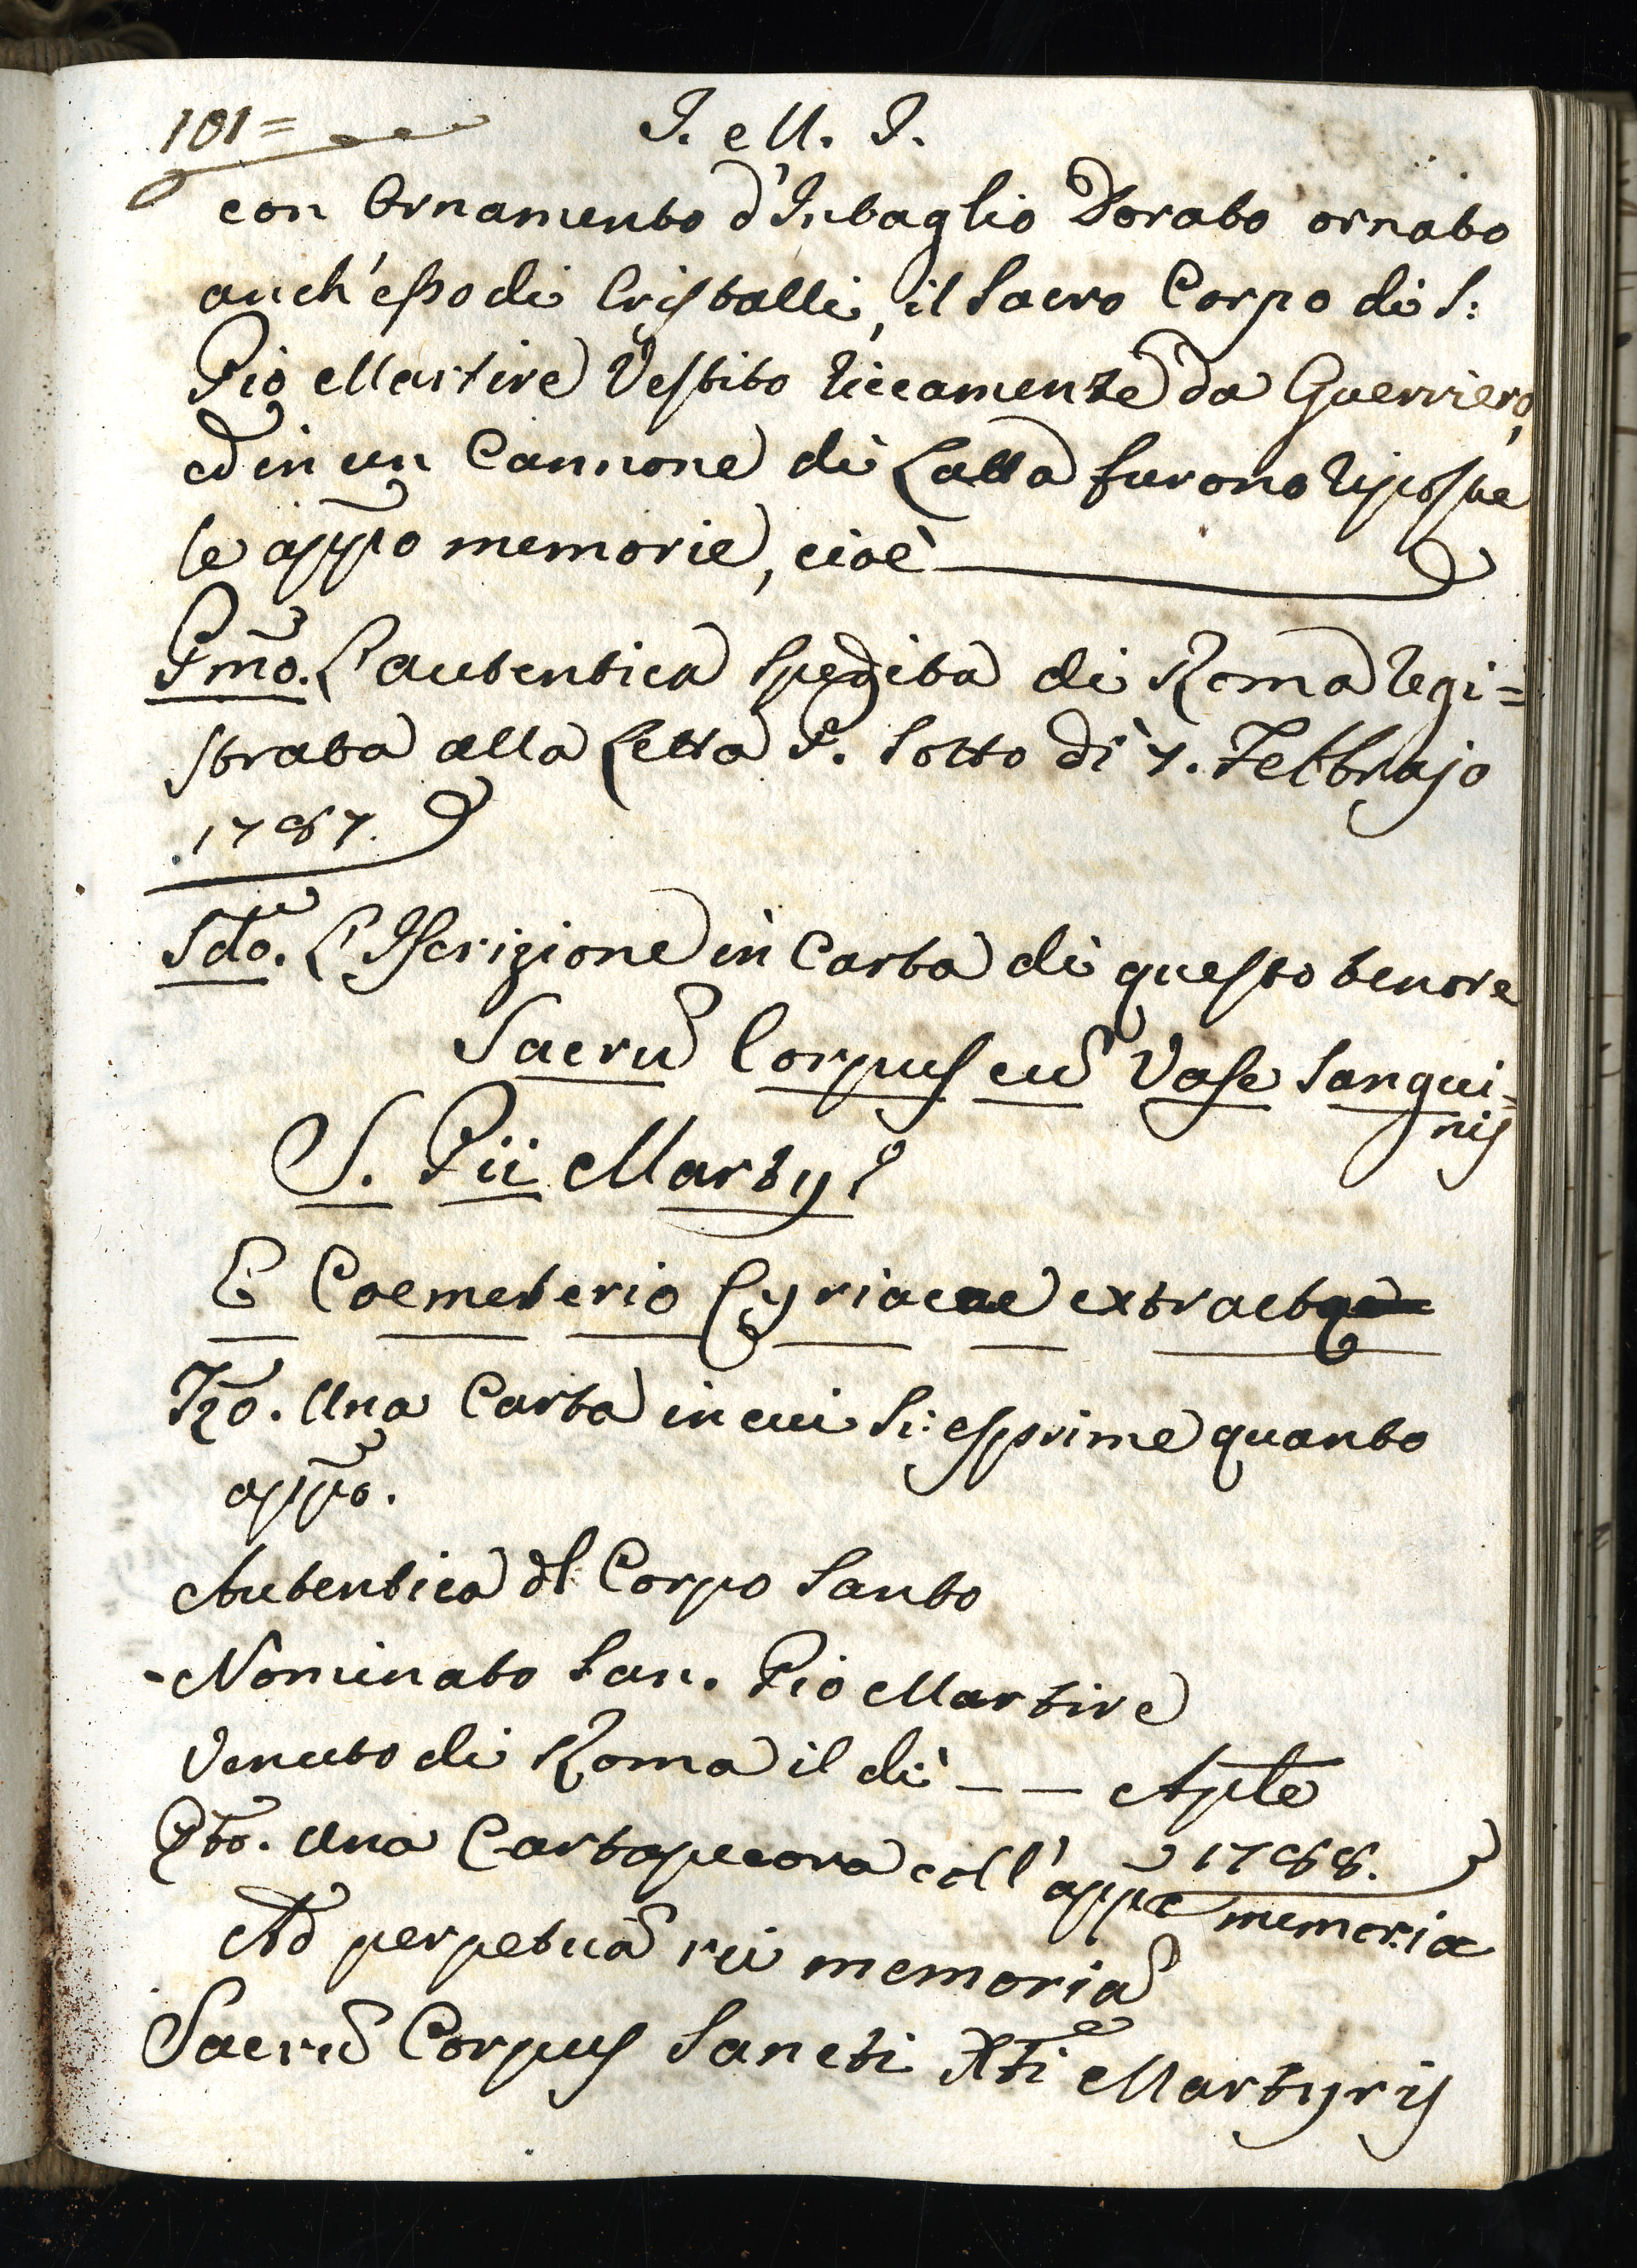 101= J. M. J.
con Ornamento d'Intaglio Dorato ornato
anch'esso di Cristalli, il Sacro Corpo di S:
Pio Martire Vestito riccamente da Guerriero,
ed in un Cannone di Latta furono riposte
le appo memorie, cioè
Pmo. L'autentica spedita di Roma regi=
strata alla Letta P. Sotto di 7. Febbrajo
1787.
Sdo. L'Iscrizione in Carta di questo tenore
Sacrū Corpus cū Vase Sangui=
nis
S. Pii Martyr
E Coemeterio Cyriacae extract
Tzo. Una Carta in cui si: esprime quanto
appo.
Autentica dl Corpo Santo
Nominato San. Pio Martire
Venuto di Roma il di - - Aple
1788.
Qto. Una Cartapecora coll'appa memoria
Ad perpetuā rei memoriā
Sacrū Corpus Sancti Martyris